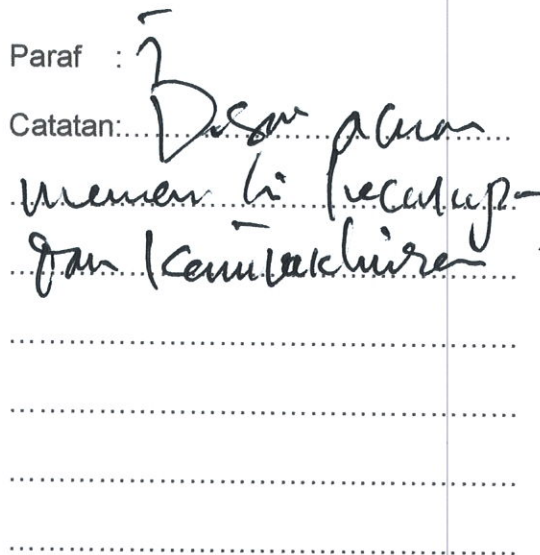 Paraf :
Catatan: Dasar acuan
memenuhi kecukup-
dan kemutakhiran